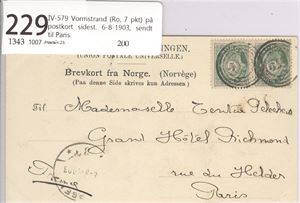 229
IV-579 Vormstrand (Ro, 7 pkt) på
postkort sidest. 6-8-1903, sendt
til Paris.
1343 1007 200
NINGEN.
(UNION POSTALE UNIVERSELLE.)
Brevkort fra Norge. (Norvège)
(Paa denne Side skrives kun Adressen.)
Til Mademoiselle
Grand Hôtel Richmond
rue du Helder
Paris